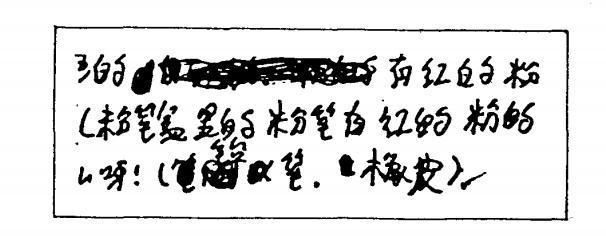 的 有红的粉
(粉笔盒里的粉笔有红的 粉的
呀!( 笔. 橡皮)。